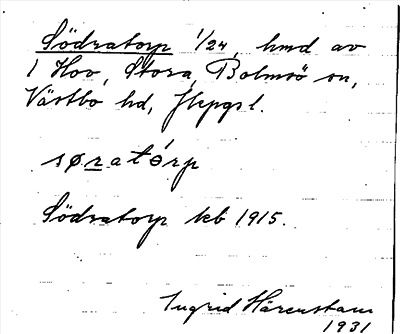 Södratorp 1/24, hmd av
1 Hov, Stora, Bolmsö sn,
Västbo hd, Jkpgs l.
søratórp
Södratorp kb 1915.
Ingrid Härenstam
1931